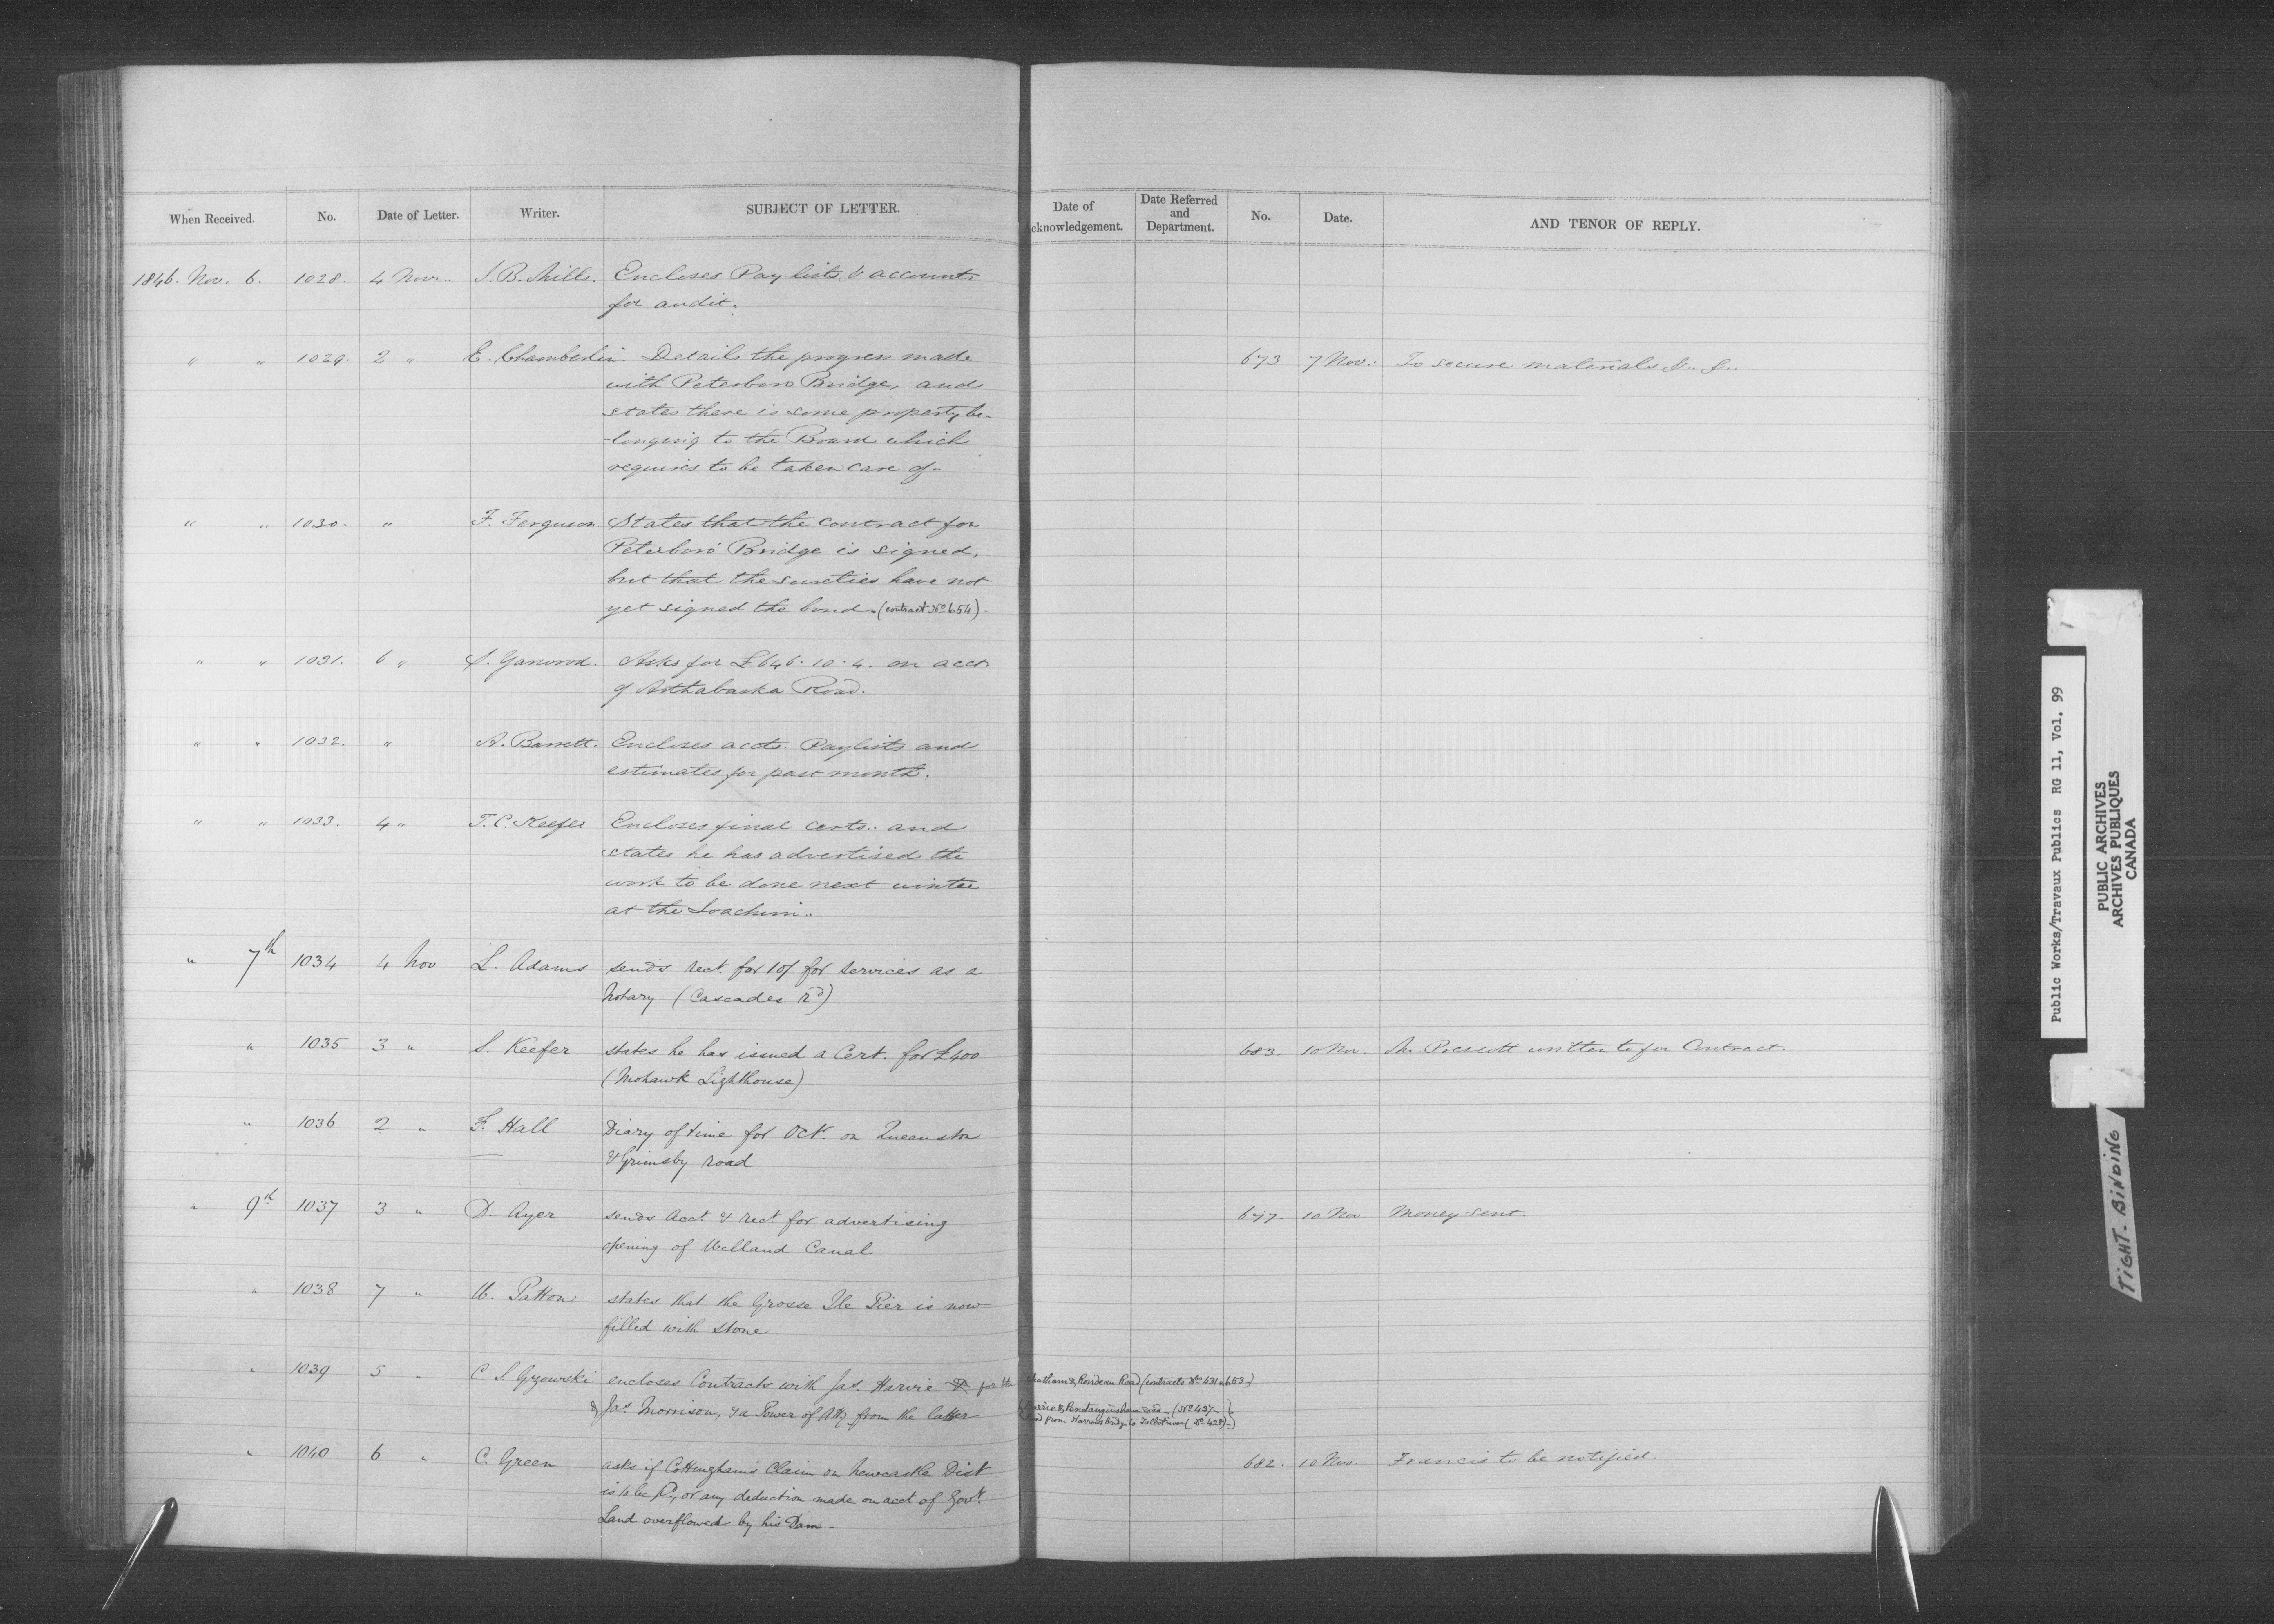 When Received. No. Date of Letter. Writer. SUBJECT OF LETTER. Date of cknowledgement. Date Referred and Department. No. Date. AND TENOR OF REPLY.
1846. Nov. 6. 1028. 4 Novr. J. B. Mills. Encloses Pay lists & accounts
for audit.
" " 1029. 2 " E. Chamberlin. Details the progress made 673 7 Nov. To secure materials &. &..
with Peterboro Bridge, and
states there is some property be-
-longing to the Board which
requires to be taken care of-
" " 1030. " F. Ferguson. States that the contract for
Peterboro' Bridge is signed,
but that the sureties have not
yet signed the bond. (contract No 654)-
" " 1031. 6 " S. Yarwood. Asks for £646.10.4. on acct.
of Arthabaska Road.
" " 1032. " A. Barrett. Encloses accts. Paylists and
estimates for past month.
" " 1033. 4 " T. C. Keefer Encloses final certs.. and
states he has advertised the
work to be done next winter
at the Joachim..
" 7th 1034 4 Nov L. Adams sends rect. for 10/ for services as a
Notary (Cascades Rd)
" 1035 3 " S. Keefer states he has issued a Cert. for £400 683. 10 Nov. Mr. Prescott written to for Contract.
(Mohawk Lighthouse)
" 1036 2 " F. Hall Diary of time for Octr. on Queenston
& Grimsby road
" 9th 1037 3 " D. Ayer sends Acct. & rect. for advertising 677. 10 Nov Money sent.
opening of Welland Canal
" 1038 7 " W. Patton states that the Grosse Ile Pier is now
filled with stone
" 1039 5 " C. S. Gzowski encloses Contracts with Jas. Harvie for the Chatham & Rondeau Road (contracts Nos 431 & 653-)
& Jas. Morrison, & a Power of Atty from the latter Barrie & Penetanguishene road - (No 437-)
Road from Narrows bridge to Talbot river (No 438)-)
" 1040 6 " C. Green asks if Cottingham's Claim on Newcastle Dist 682. 10 Nov Francis to be notified.
is to be Pd., or any deduction made on acct of Govt.
Land overflowed by his Dam-
Public Works/Travaux Publics RG 11, Vol. 99
PUBLIC ARCHIVES
ARCHIVES PUBLIQUES
CANADA
TIGHT-BINDING